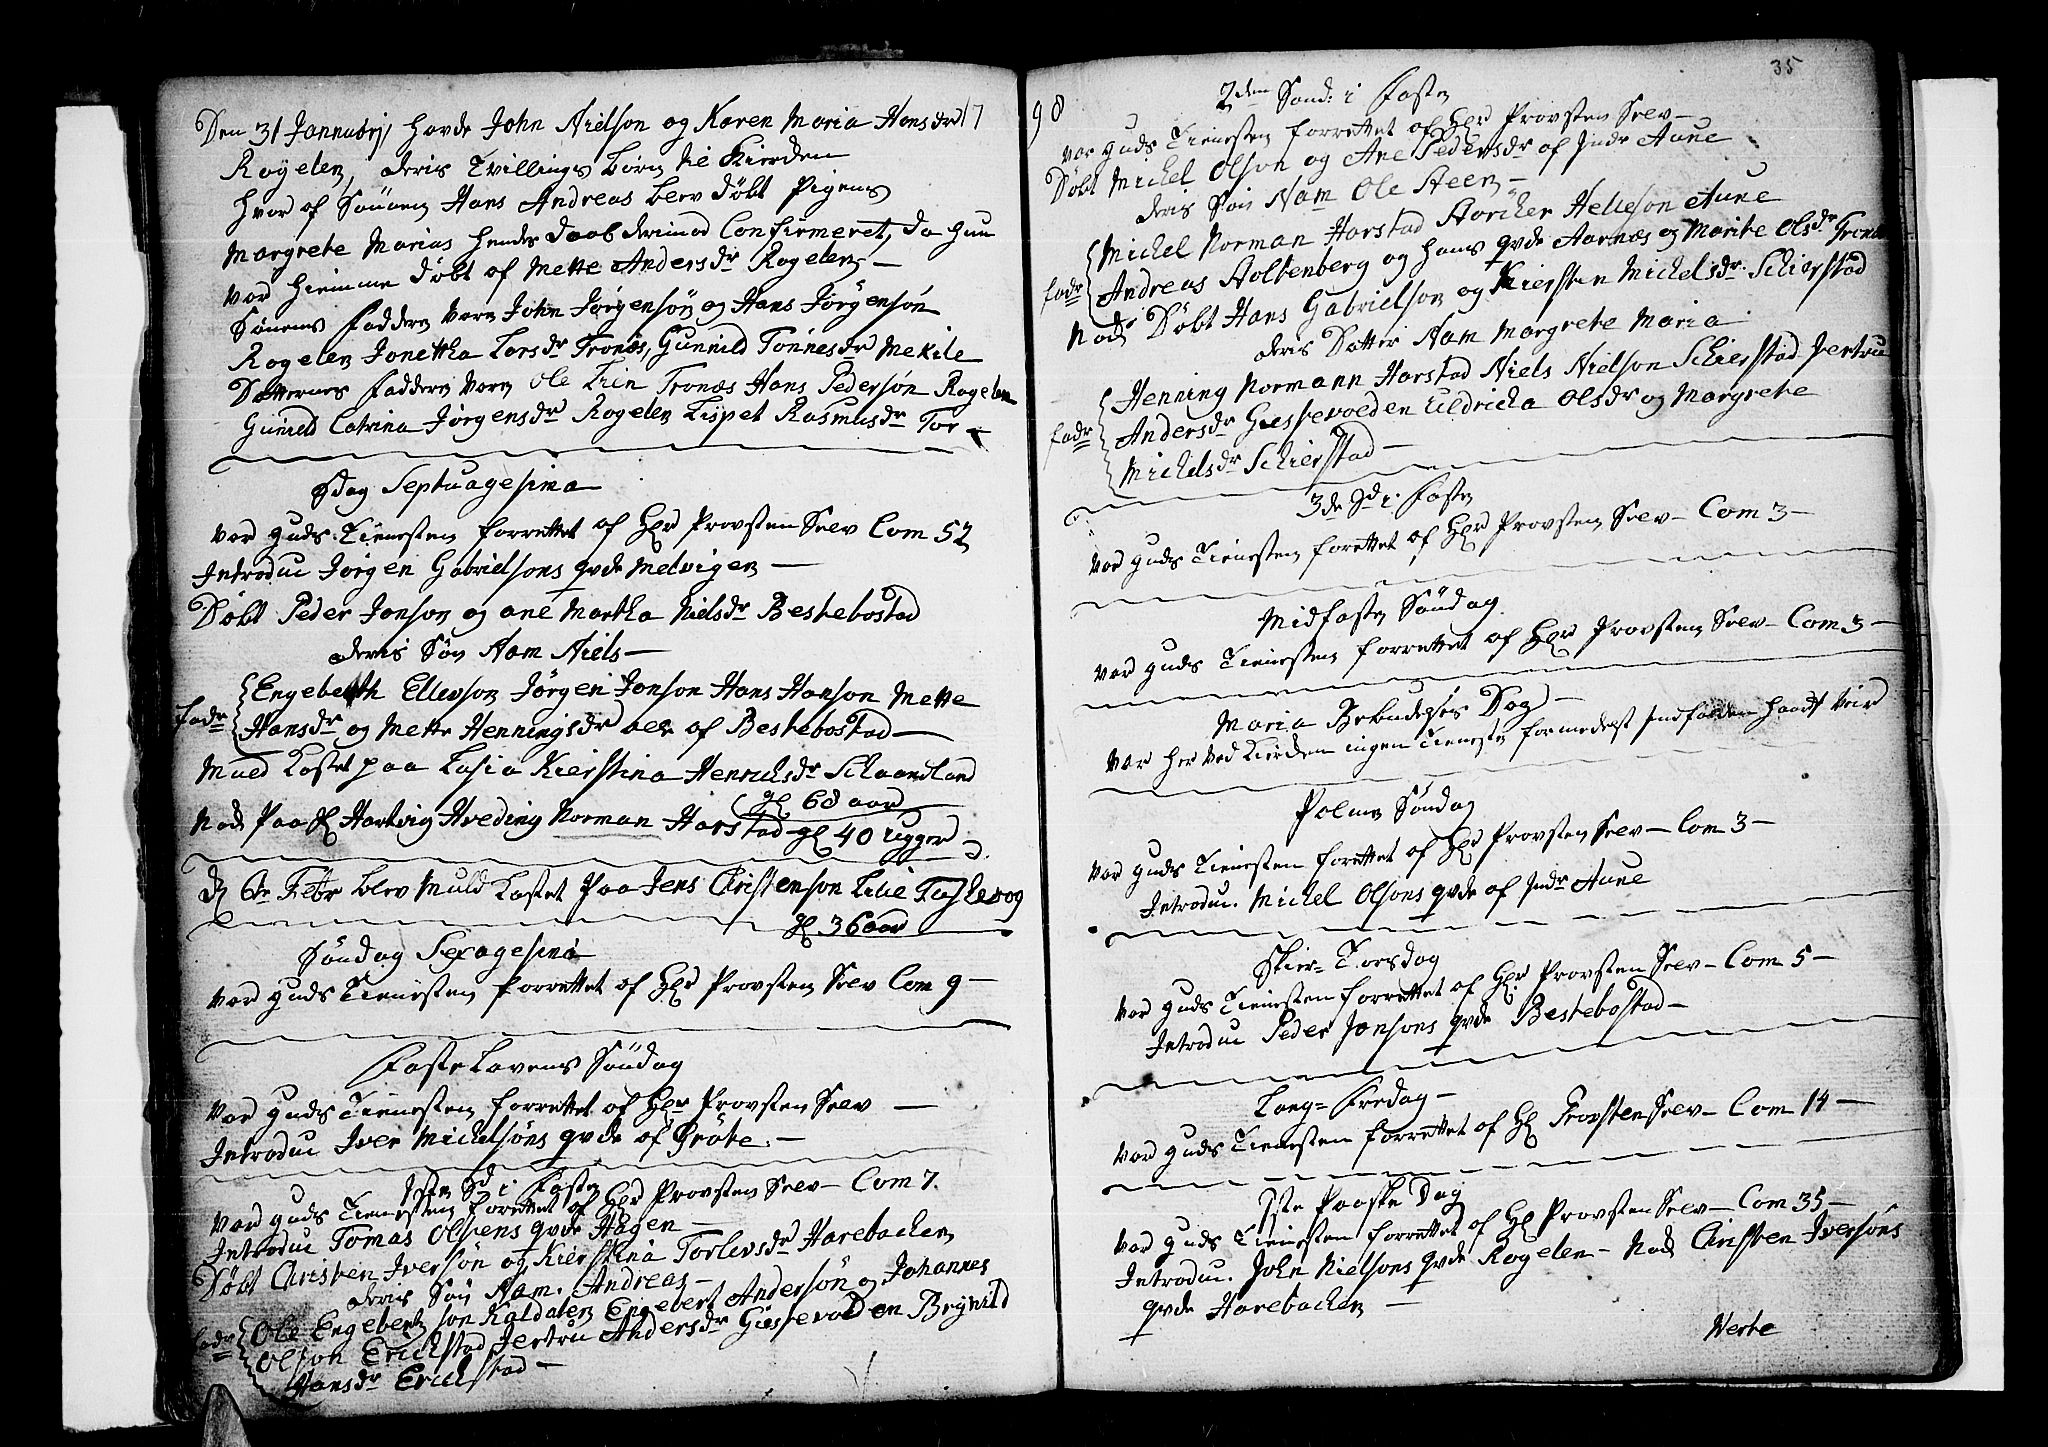 Den 31 Jannuarj havde John Nielson og Karen Maria Hansdr 17
Rogelen, deris Tvillings børn til Kierken
hvor af Sønnen Hans Andreas blev døbt Pigens
Margrete Marias hendes daab derimod Confirmeret, da hun
var hiemme døbt af Mette Andersdr Rogelen –
Sønnens Faddere vare John Jørgensøn og Hans Jørgensøn
Rogelen Jonettha Larsdr Tronæs, Gunnild Tønnesdr Mekile
Datternes Faddere vare Ole Trin Tronæs Hans Pedersøn Rogelen
Gunild Catrina Jørgensdr Rogelen Lispet Rasmusdr Tor –
Sdag Septuagesima
var guds Tienesten forrettet af Hr Provsten Selv Com 52
Introduc Jørgen Gabrielsons qvde Melvigen –
Døbt Peder Jonson og ane Martha Nielsdr Bestebostad
deris Søn Nam Niels –
fadr Engebreth Ellevson Jørgen Jonson Hans Hanson Mette
Hansdr og Mette Henningsdr alle af Bestebostad –
Muld Kastet paa Lasia Kierstina Henrichsdr Schaanland
gl 68 aar
Nok Paa Hartvig Hveding Norman Harstad gl 40 ugger
d 6te Febr blev Muld Kastet Paa Jens Christenson Lille Taskevog
gl 36 aar
Søndag Sexagesima
var guds Tienesten forrettet af Hr Provsten Selv Com 9 –
Fastelavens Søndag
var guds Tienesten forrettet af Hr Provsten Selv –
Introduc Iver Michelsøns qvde af Grøte –
1ste Sd i Fasten
var guds Tienesten forrettet af Hr Provsten Selv – Com 7.
Introduc Tomas Olsens qvde Hagen –
Døbt Christen Iversøn og Kierstina Torlevsdr Harebacken
deris Søn Nam. Andreas –
fadr Ole Engebretson Kaldalen Engebert Andersøn og Johannes
Olson Erickstad Jertru Andersdr Giessevolden Brynild
Hansdr Erickstad –
35
98
2den Sønd: i Fasten
var guds Tienesten forrettet af Hr Provsten Selv –
Døbt Michel Olson og Ane Pedersdr af Indr Aune
deris Søn Nam Ole Steen –
fadr Michel Norman Harstad Storcker Helleson Aune
Andreas Holtenberg og hans qvde Aarnæs og Marite Olsdr
Nok Døbt Hans Gabrielson og Kiersten Michelsdr. Schierstad
deris Datter Nam Margrete Maria
fadr Henning Normann Harstad Niels Nielson Schierstad Jertru
Andersdr Giessevolden Uldricka Olsdr og Margrete
Michelsdr Schierstad –
3de Sd i. Fasten
var guds Tienesten forettet af Hr Provsten Selv – Com 3 –
Midfaste Søndag
var guds Tienesten forrettet af Hr Provsten Selv – Com 3 –
Maria Bebudelses Dag –
var her ved Kierken ingen Tieneste formedelst indfalden haardt Veir
Palme Søndag
var guds Tienesten forettet af Hr Provsten Selv – Com 3 –
Introduc. Michel Olsons qvde af Indr Aune
Skier- Torsdag
var guds Tienesten forrettet af Hr. Provsten Selv – Com 5 –
Introduc Peder Jonsons qvde Bestebostad –
Lang- Fredag –
var guds Tienesten forrettet af Hr Provsten Selv – Com 14 –
1ste Paaske Dag
var guds Tienesten forrettet af Hr Provsten Selv – Com 35 –
Introduc. John Nielsons qvde Rogelen – Nok Christen Iversøns
qvde Harebacken –
Verte